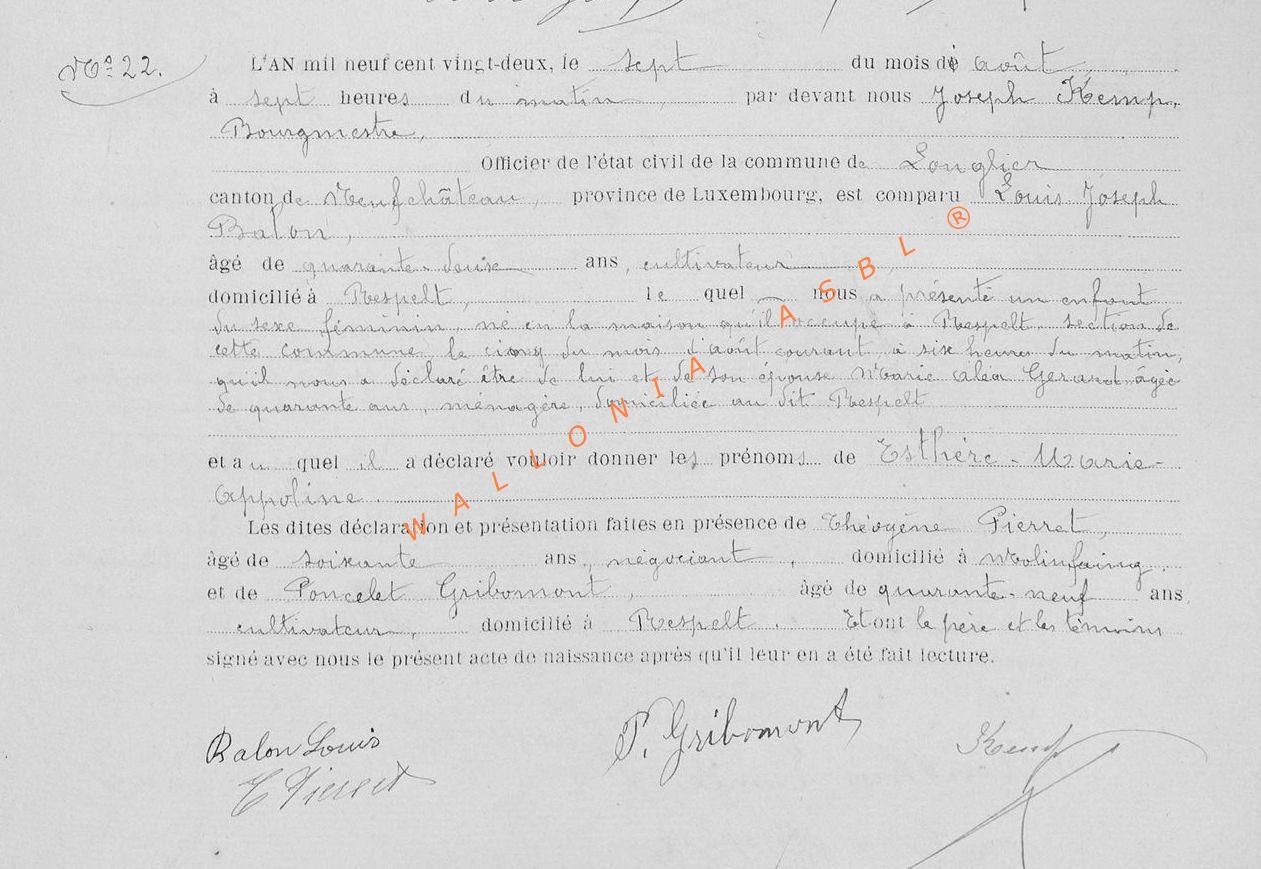 No. 22.
L'AN mil neuf cent vingt-deux, le sept du mois de août
à sept heures du matin, par devant nous Joseph Kemp,
Bourgmestre,
Officier de l'état civil de la commune de Longlier
canton de Neufchâteau, province de Luxembourg, est comparu Louis Joseph
Balon,
âgé de quarante-deux ans, cultivateur,
domicilié à Respelt, le quel nous a présenté un enfant
du sexe féminin, né en la maison qu'il occupe à Respelt section de
cette commune, le cinq du mois d'août courant, à six heures du matin,
qu'il nous a déclaré être de lui et de son épouse Marie Gerard âgée
de quarante ans, ménagère, domiciliée au dit Respelt
et au quel il a déclaré vouloir donner les prénoms de Esthère-Marie-
Appoline.
Les dites déclaration et présentation faites en présence de Théogène Pierret,
âgé de soixante ans, négociant, domicilié à Molinfaing,
et de Poncelet Gribomont, âgé de quarante-neuf ans,
cultivateur, domicilié à Respelt. Et ont le père et les témoins
signé avec nous le présent acte de naissance après qu'il leur en a été fait lecture.
Balon Louis P. Gribomont Kemp
T Pierret
WALLONIA ASBL ®